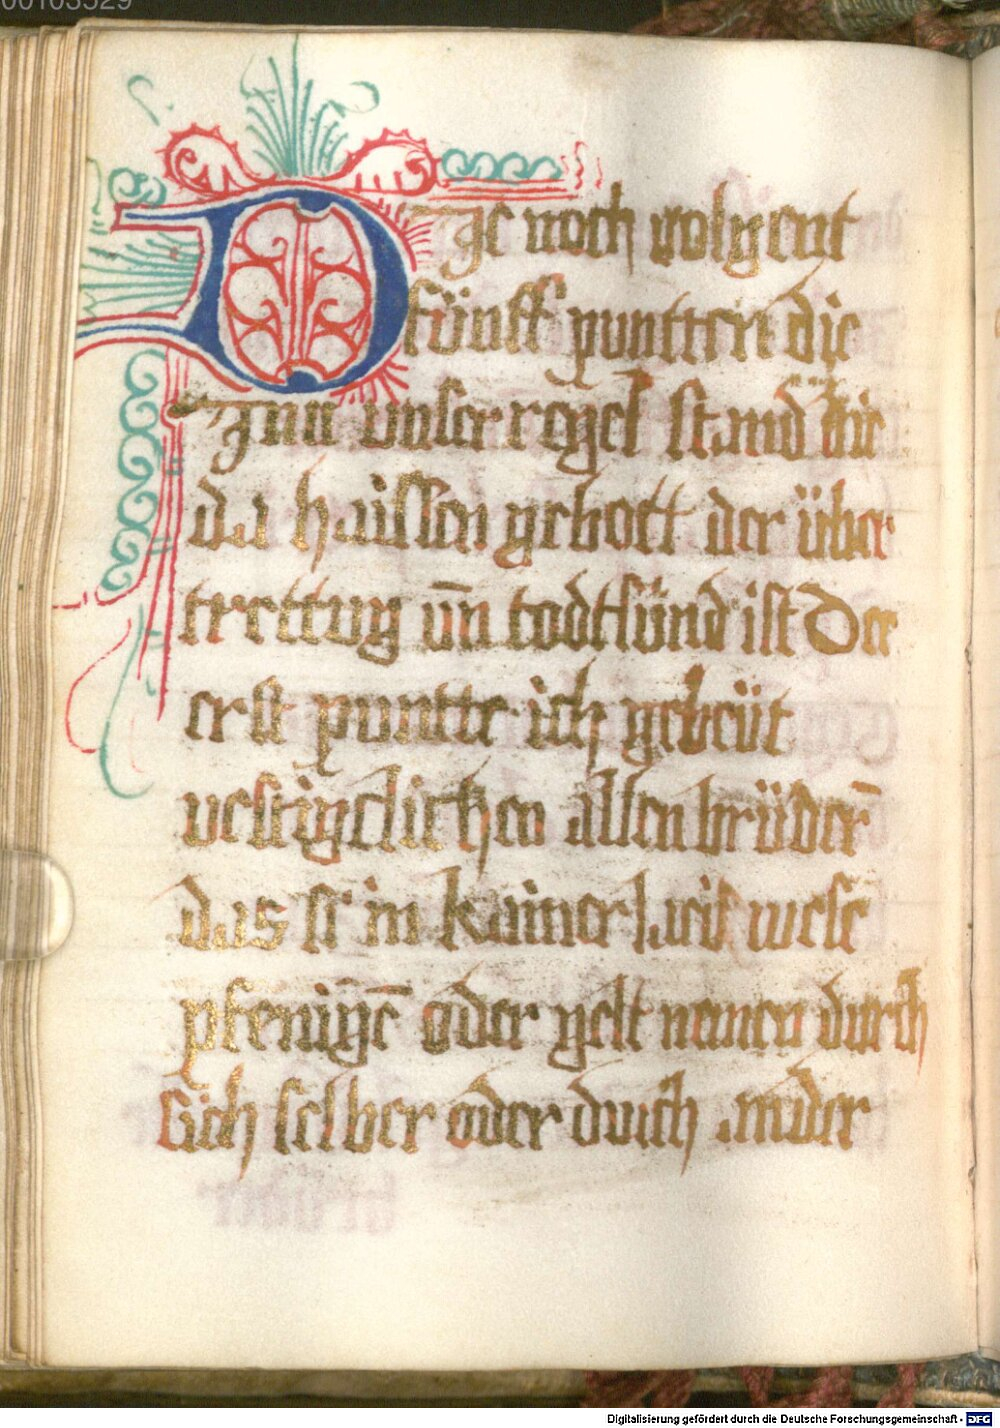 00103529
DJe noch volgent
fünff puntten die
Jnn vnser regel stand die
da haissen gebott der über
trettung vn̄ todtsünd ist Der
erst puntte ich gebeüt
vestigclichen allen brüdern̄
das si in kainerlaiß wese
pfeninge̅ oder gelt nemen durch
sich selber oder durch ander
Digitalisierung gefördert durch die Deutsche Forschungsgemeinschaft - DFG